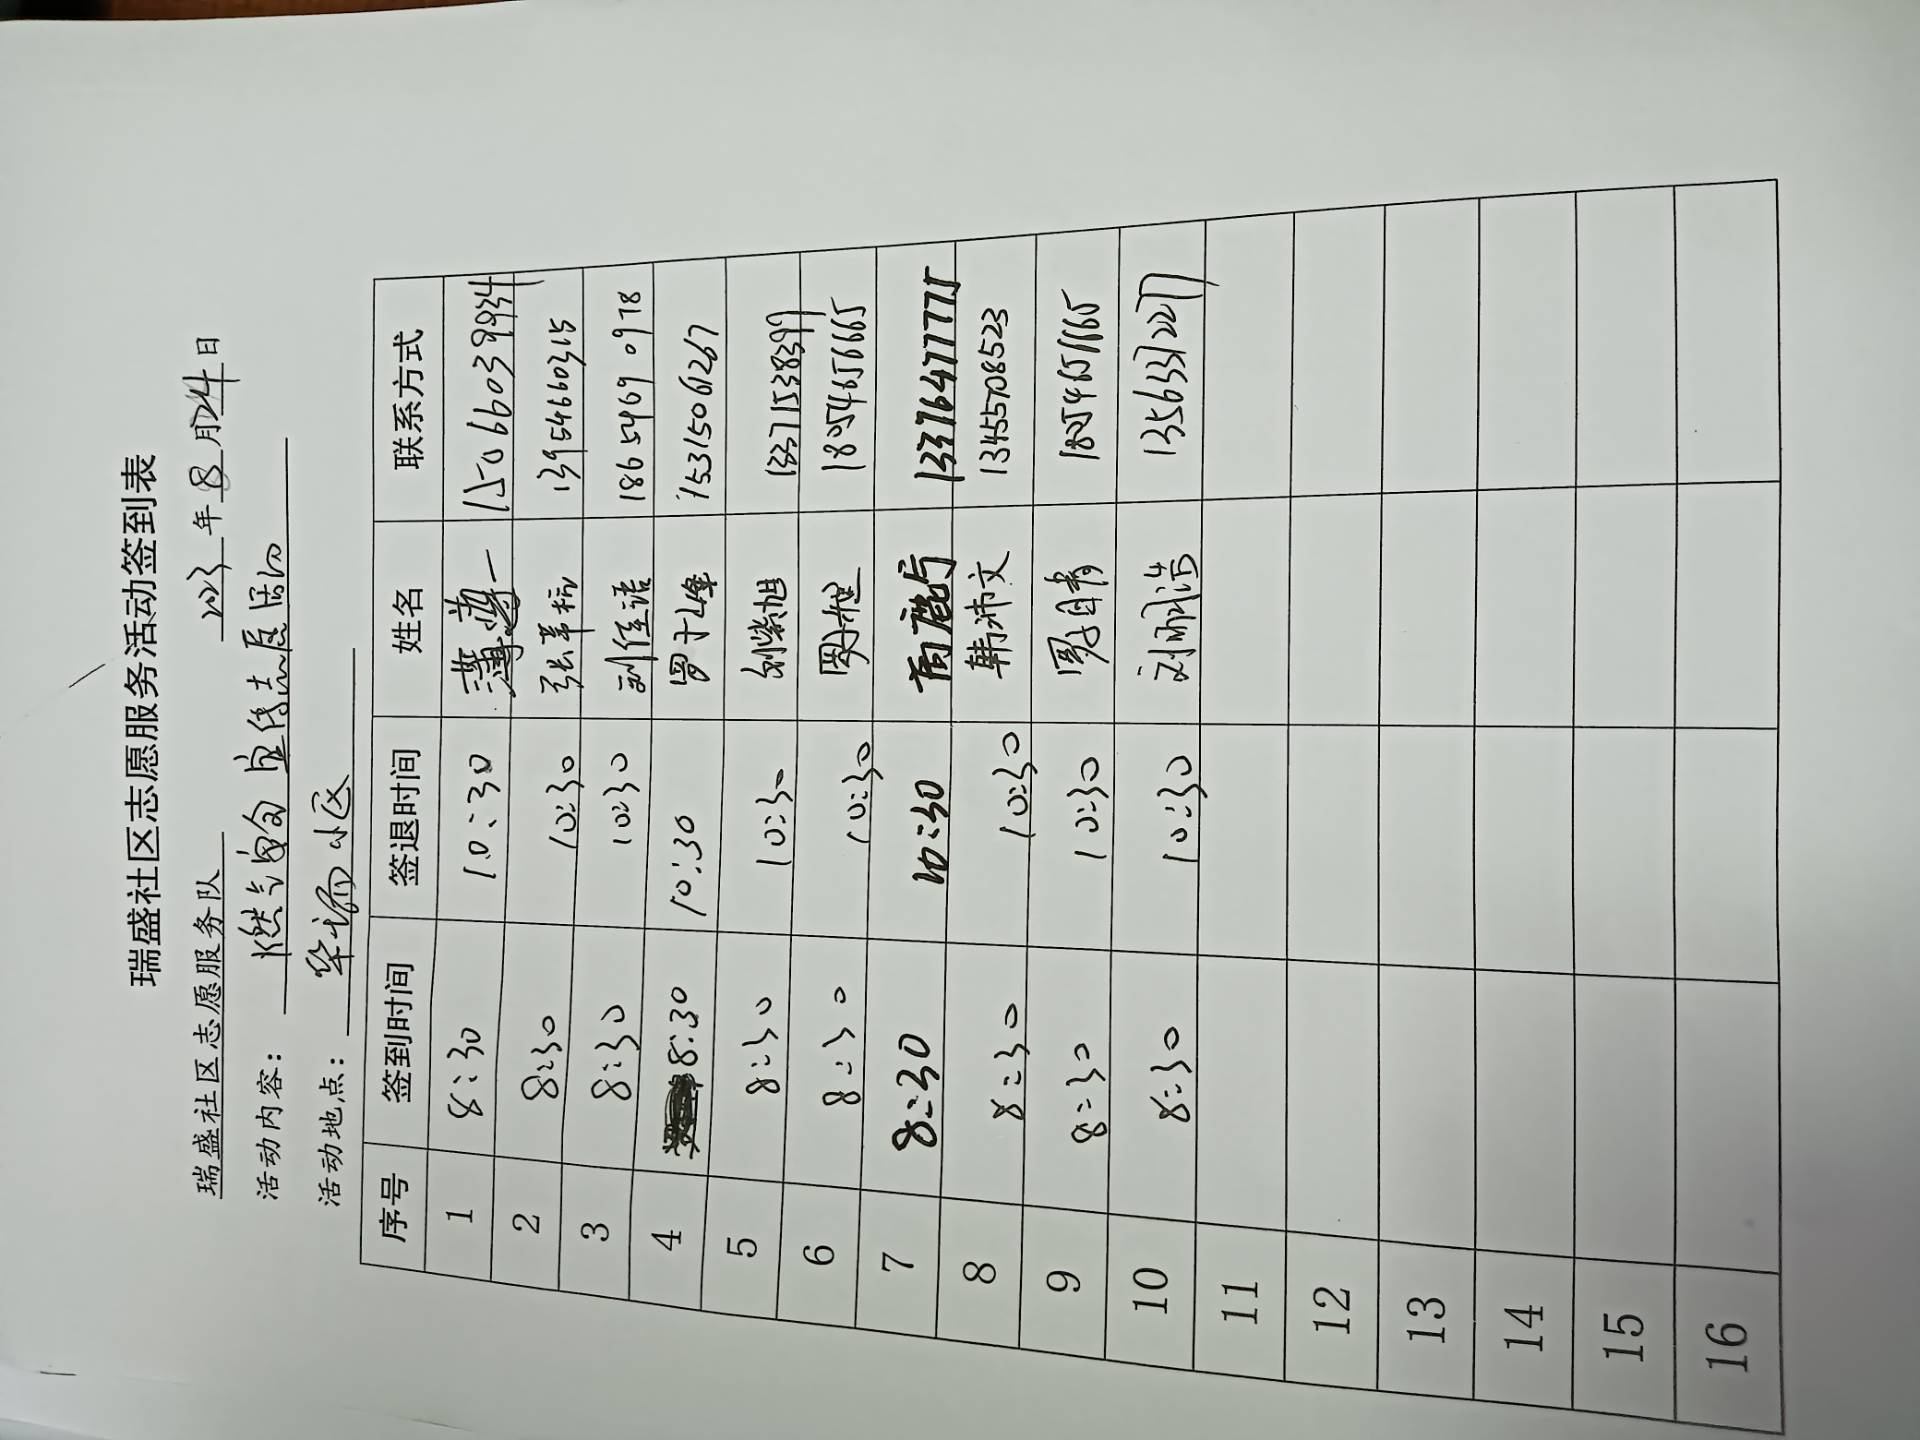 瑞盛社区志愿服务活动签到表
瑞盛社区志愿服务队 2023年8月24日
活动内容: 燃气安全宣传志愿活动
活动地点: 小区
序号 签到时间 签退时间 姓名 联系方式
1 8:30 10:30 15066039934
2 8:30 10:30 13954660315
3 8:30 10:30 刘佳语 186 5469 0978
4 8:30 10:30 15315061267
5 8:30 10:30 刘紫旭 13371538399
6 8:30 10:30 18054656665
7 8:30 10:30 13376477775
8 8:30 10:30 韩沛文 13455708523
9 8:30 10:30 周倩
10 8:30 10:30 13563312277
11
12
13
14
15
16